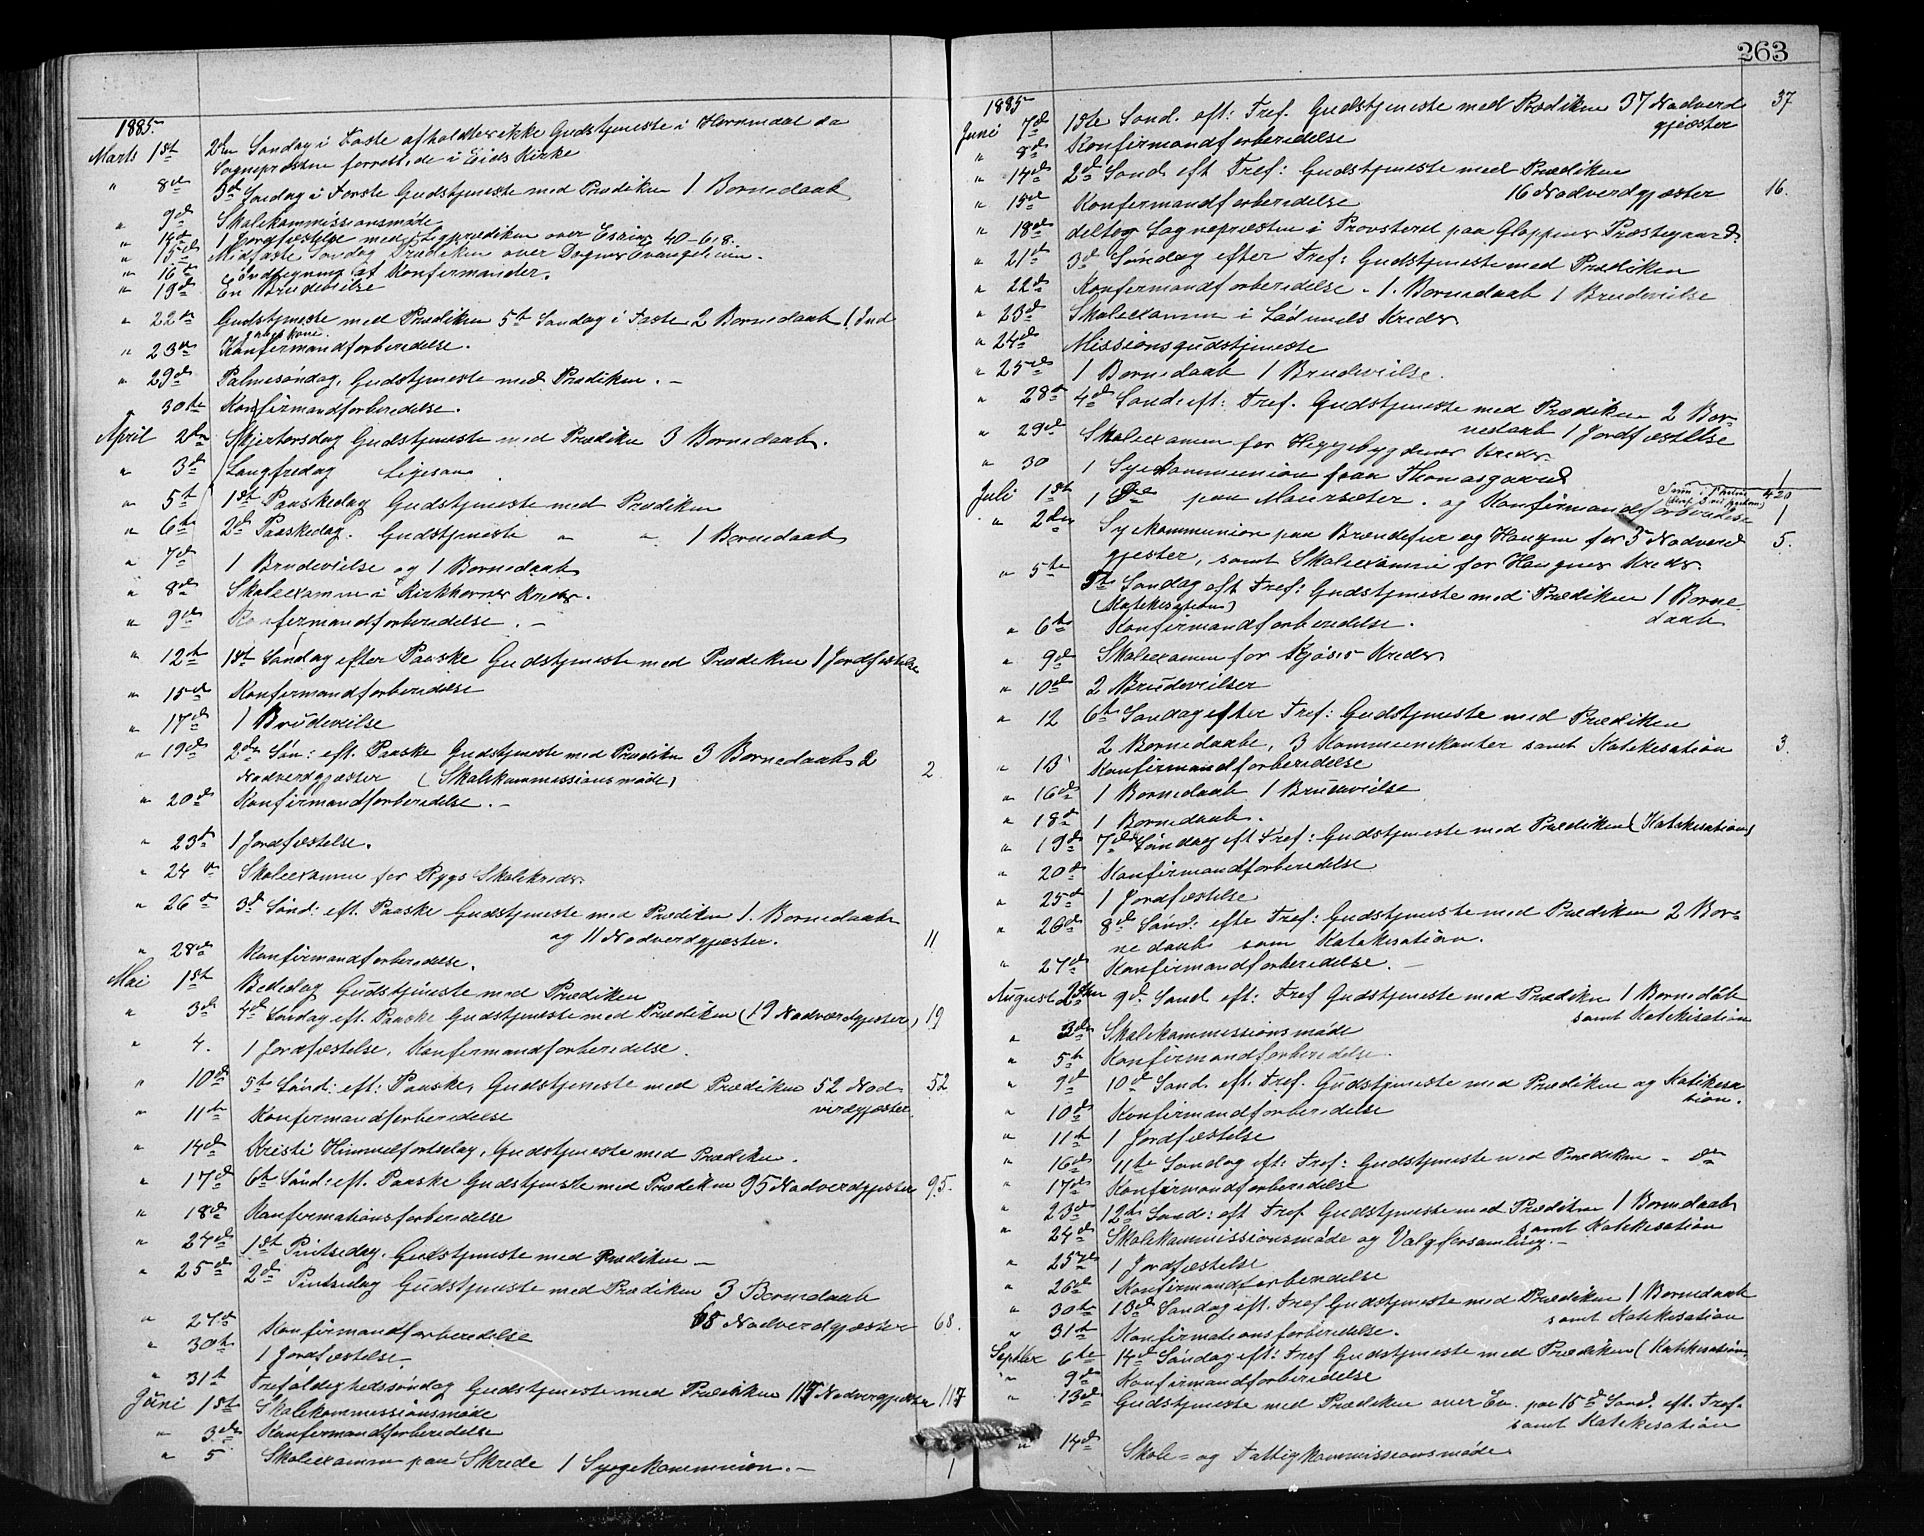 1885
Marts 1st 2den Søndag i Faste afholdtes ikke Gudstjeneste i Hornindal da
Sognepresten forrettede i Eids Kirke
" 8de 3de Søndag i Faste Gudstjeneste med Prædiken 1 Barnedaab
" 9de Skolekommissionsmøde
" 14de 1 Jordfæstelse med Ligprædiken over Esaias 40-6,8.
" 15de Midfaste Søndag Prædiken over Dagens Evangelium.
" 16de Indtegning af Konfirmander.
" 19de En Brudevielse
" 22de Gudstjeneste med Prædiken 5te Søndag i Faste 2 Barnedaab 1 Ind
" 23de Konfirmandforberedelse.
" 29de Palmesøndag. Gudstjeneste med Prædiken. -
" 30te Konfirmandforberedelse.
April 2den Skjertorsdag Gudstjeneste med Prædiken 3 Barnedaab.
" 3de Langfredag Ligesaa
" 5te 1ste Paaskedag Gudstjeneste med Prædiken
" 6te 2den Paaskedag. Gudstjeneste " " 1 Barnedaab
" 7de 1 Brudevielse og 1 Barnedaab
" 8de Skoleexamen i Kirkhornes Kreds.
" 9de Konfirmandforberedelse. -
" 12te 1ste Søndag efter Paaske Gudstjeneste med Prædiken 1 Jordfæstelse
" 15de Konfirmandforberedelse
" 17de 1 Brudevielse
" 19de 2den Søn: eft. Paaske Gudstjeneste med Prædiken 3 Barnedaab 2
Nadverdgjæster (Skolekommissionsmøde) 2
" 20de Konfirmandforberedelse. -
" 23de 1 Jordfæstelse.
" 24de Skoleexamen for Rygs Skolekreds.
" 26de 3de Sønd: eft. Paaske Gudstjeneste med Prædiken 1. Barnedaab
og 11 Nadverdgjæster. 11
" 28de Konfirmandforberedelse.
Mai 1ste Bededag Gudstjeneste med Prædiken
" 3de 4de Søndag eft. Paaske Gudstjeneste med Prædiken (19 Nadverdgjæster) 19
" 4. 1 Jordfæstelse. Konfirmandforberedelse.
" 10de 5te Sønd: eft: Paaske, Gudstjeneste med Prædiken 52 Nad- 52
verdgjæster
" 11te Konfirmandforberedelse
" 14de Kristi Himmelfartsdag, Gudstjeneste med Prædiken.
" 17de 6te Sønd: eft. Paaske Gudstjeneste med Prædiken 95 Nadverdgjæster 95.
" 18de Konfirmationsforberedelse
" 24de 1ste Pintsedag. Gudstjeneste med Prædiken -
" 25de 2den Pintsedag Gudstjeneste med Prædiken 3 Barnedaab
68 Nadverdgjæster 68.
" 27de Konfirmandforberedelse
" 30te 1 Jordfæstelse
" 31te Trefoldighedssøndag Gudstjeneste med Prædiken 117 Nadverdgjæster 117
Juni 1ste Skolekommissionsmøde
" 3de Konfirmandforberedelse
" 5 Skoleexamen paa Skrede 1 Sygekommunion. - 1
263
1885
Juni 7de 1ste Sønd. eft: Tref. Gudstjeneste med Prædiken 37 Nadverd 37
gjæster
" 8de Konfirmandforberedelse
" 14de 2de Sønd eft Tref: Gudstjeneste med Prædiken
16 Nadverdgjæster 16.
" 15de Konfirmandforberedelse
" 18de deltog Sognepresten i Provsteret paa Gloppens Præstegaard
" 21de 3de Søndag efter Tref: Gudstjeneste med Prædiken
" 22de Konfirmandforberedelse. 1. Barnedaab 1 Brudevielse
" 23de Skoleexamen i Kreds
" 24de Missionsgudstjeneste
" 25de 1 Barnedaab 1 Brudevielse.
" 28de 4de Sønd: eft: Tref. Gudstjeneste med Prædiken 2 Bar-
nedaab 1 Jordfæstelse
" 29de Skoleexamen for Heggebygdens Kreds.
" 30 1 Sygekommunion paa Thomasgaard 1
Juli 1ste 1 Do paa Maursæter. og Konfirmandforberedelse 1
Sum 420
" 2den Sygekommunion paa Brændefur og Haugen for 5 Nadverd 5.
gjæster, samt Skoleexamen for Haugens Kreds
" 5te 5te Søndag eft Tref: Gudstjeneste med Prædiken 1 Barne
(Katekisation) daab
" 6te Konfirmandforberedelse.
" 9de Skoleexamen for Kjøsis Kreds
" 10de 2 Brudevielser
" 12 6te Søndag efter Tref: Gudstjeneste med Prædiken
2 Barnedaab, 3 Kommunikanter samt Katekisation 3.
" 13 Konfirmandforberedelse
" 16de 1 Barnedaab 1 Brudevielse
" 18de 1 Barnedaab.
" 19de 7de Søndag eft Tref: Gudstjeneste med Prædiken (Katekisation)
" 20de Konfirmandforberedelse
" 25de 1 Jordfæstelse
" 26de 8de Sønd: efter Tref: Gudstjeneste med Prædiken 2 Bar-
nedaab samt Katekisation.
" 27de Konfirmandforberedelse. -
August 2den 9de Sønd eft: Tref Gudstjeneste med Prædiken 1 Barnedaab
samt Katekisation
" 3die Skolekommissionsmøde
" 5te Konfirmandforberedelse.
" 9de 10de Sønd. eft. Tref. Gudstjeneste med Prædiken og Katekisa
tion.
" 10de Konfirmandforberedelse
" 11te 1 Jordfæstelse
" 16de 11te Søndag eft: Tref: Gudstjeneste med Prædiken - do
" 17de Konfirmandforberedelse
" 23de 12te Sønd: eft Tref Gudstjeneste med Prædiken 1 Barnedaab
samt Katekisation
" 24de Skolekommissionsmøde og Valgforsamling. -
" 25de 1 Jordfæstelse
" 26de Konfirmandforberedelse
" 30te 13de Søndag eft. Tref Gudstjeneste med Prædiken 1 Barnedaab
samt Katekisation
" 31te Konfirmationsforberedelse.
Septber 6te 14de Søndag eft: Tref Gudstjeneste med Prædiken (Katekisation)
" 9de Konfirmandforberedelse
" 13de Gudstjeneste med Prædiken over Ev. paa 15de Sønd. eft. Tref.
samt Katekisation
" 14de Skole= og Fattigkommissionsmøde